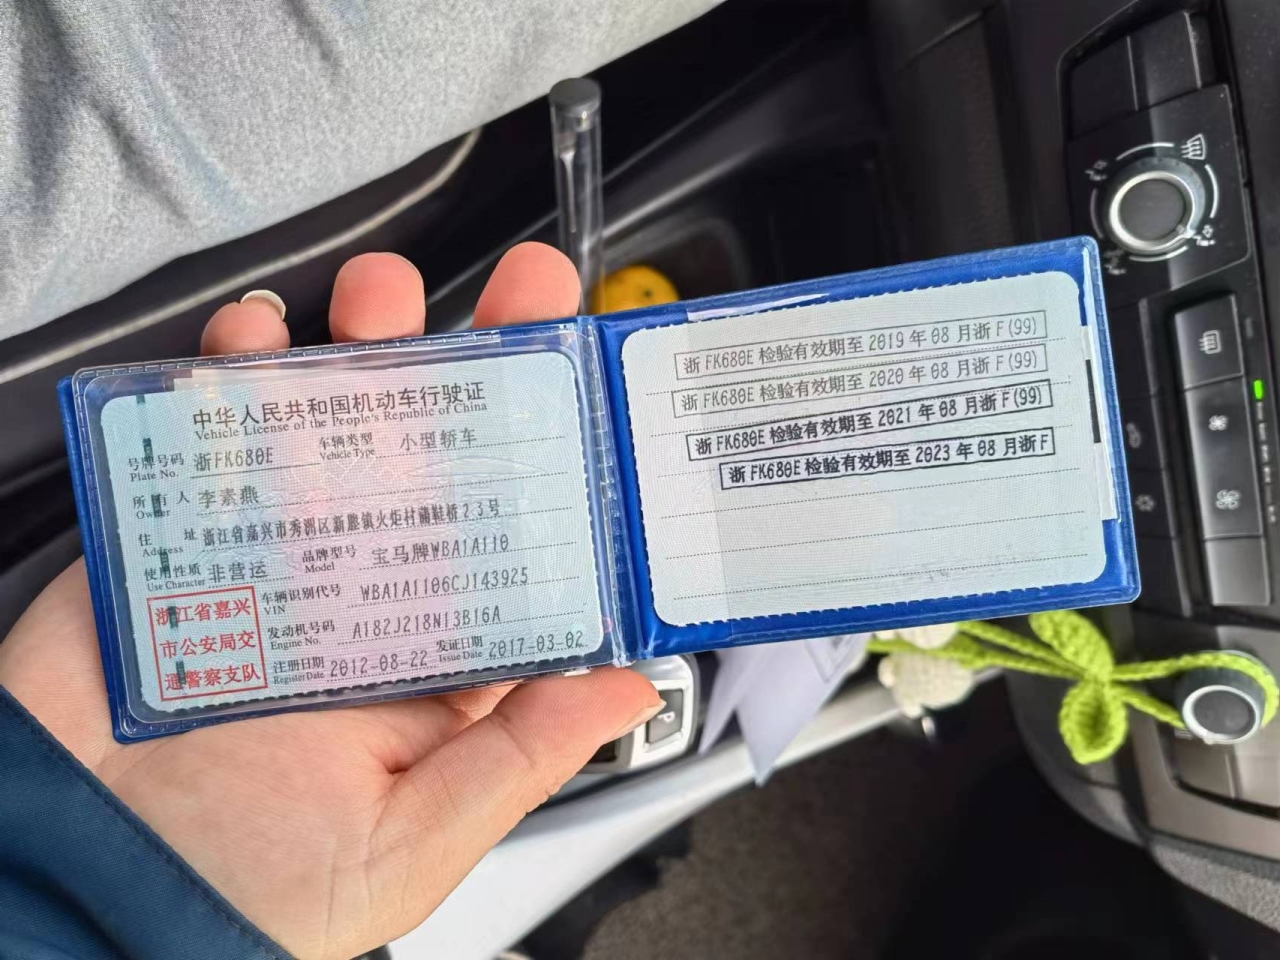 中华人民共和国机动车行驶证
Vehicle License of the People's Republic of China
号牌号码 浙FK680E 车辆类型 小型轿车
Plate No. Vehicle Type
所有人 李素燕
Owner
住址 浙江省嘉兴市秀洲区新塍镇火炬村蒲鞋桥23号
Address
使用性质 非营运 品牌型号 宝马牌WBA1A110
Use Character Model
浙江省嘉兴
市公安局交
通警察支队
车辆识别代号 WBA1A1106CJ143925
VIN
发动机号码 A182J218N13B16A
Engine No.
注册日期 2012-08-22 发证日期 2017-03-02
Register Date Issue Date
浙FK680E 检验有效期至 2019 年 08 月浙 F(99)
浙FK680E 检验有效期至 2020 年 08 月浙 F(99)
浙FK680E 检验有效期至 2021 年 08 月浙 F(99)
浙FK680E 检验有效期至 2023 年 08 月浙 F
P